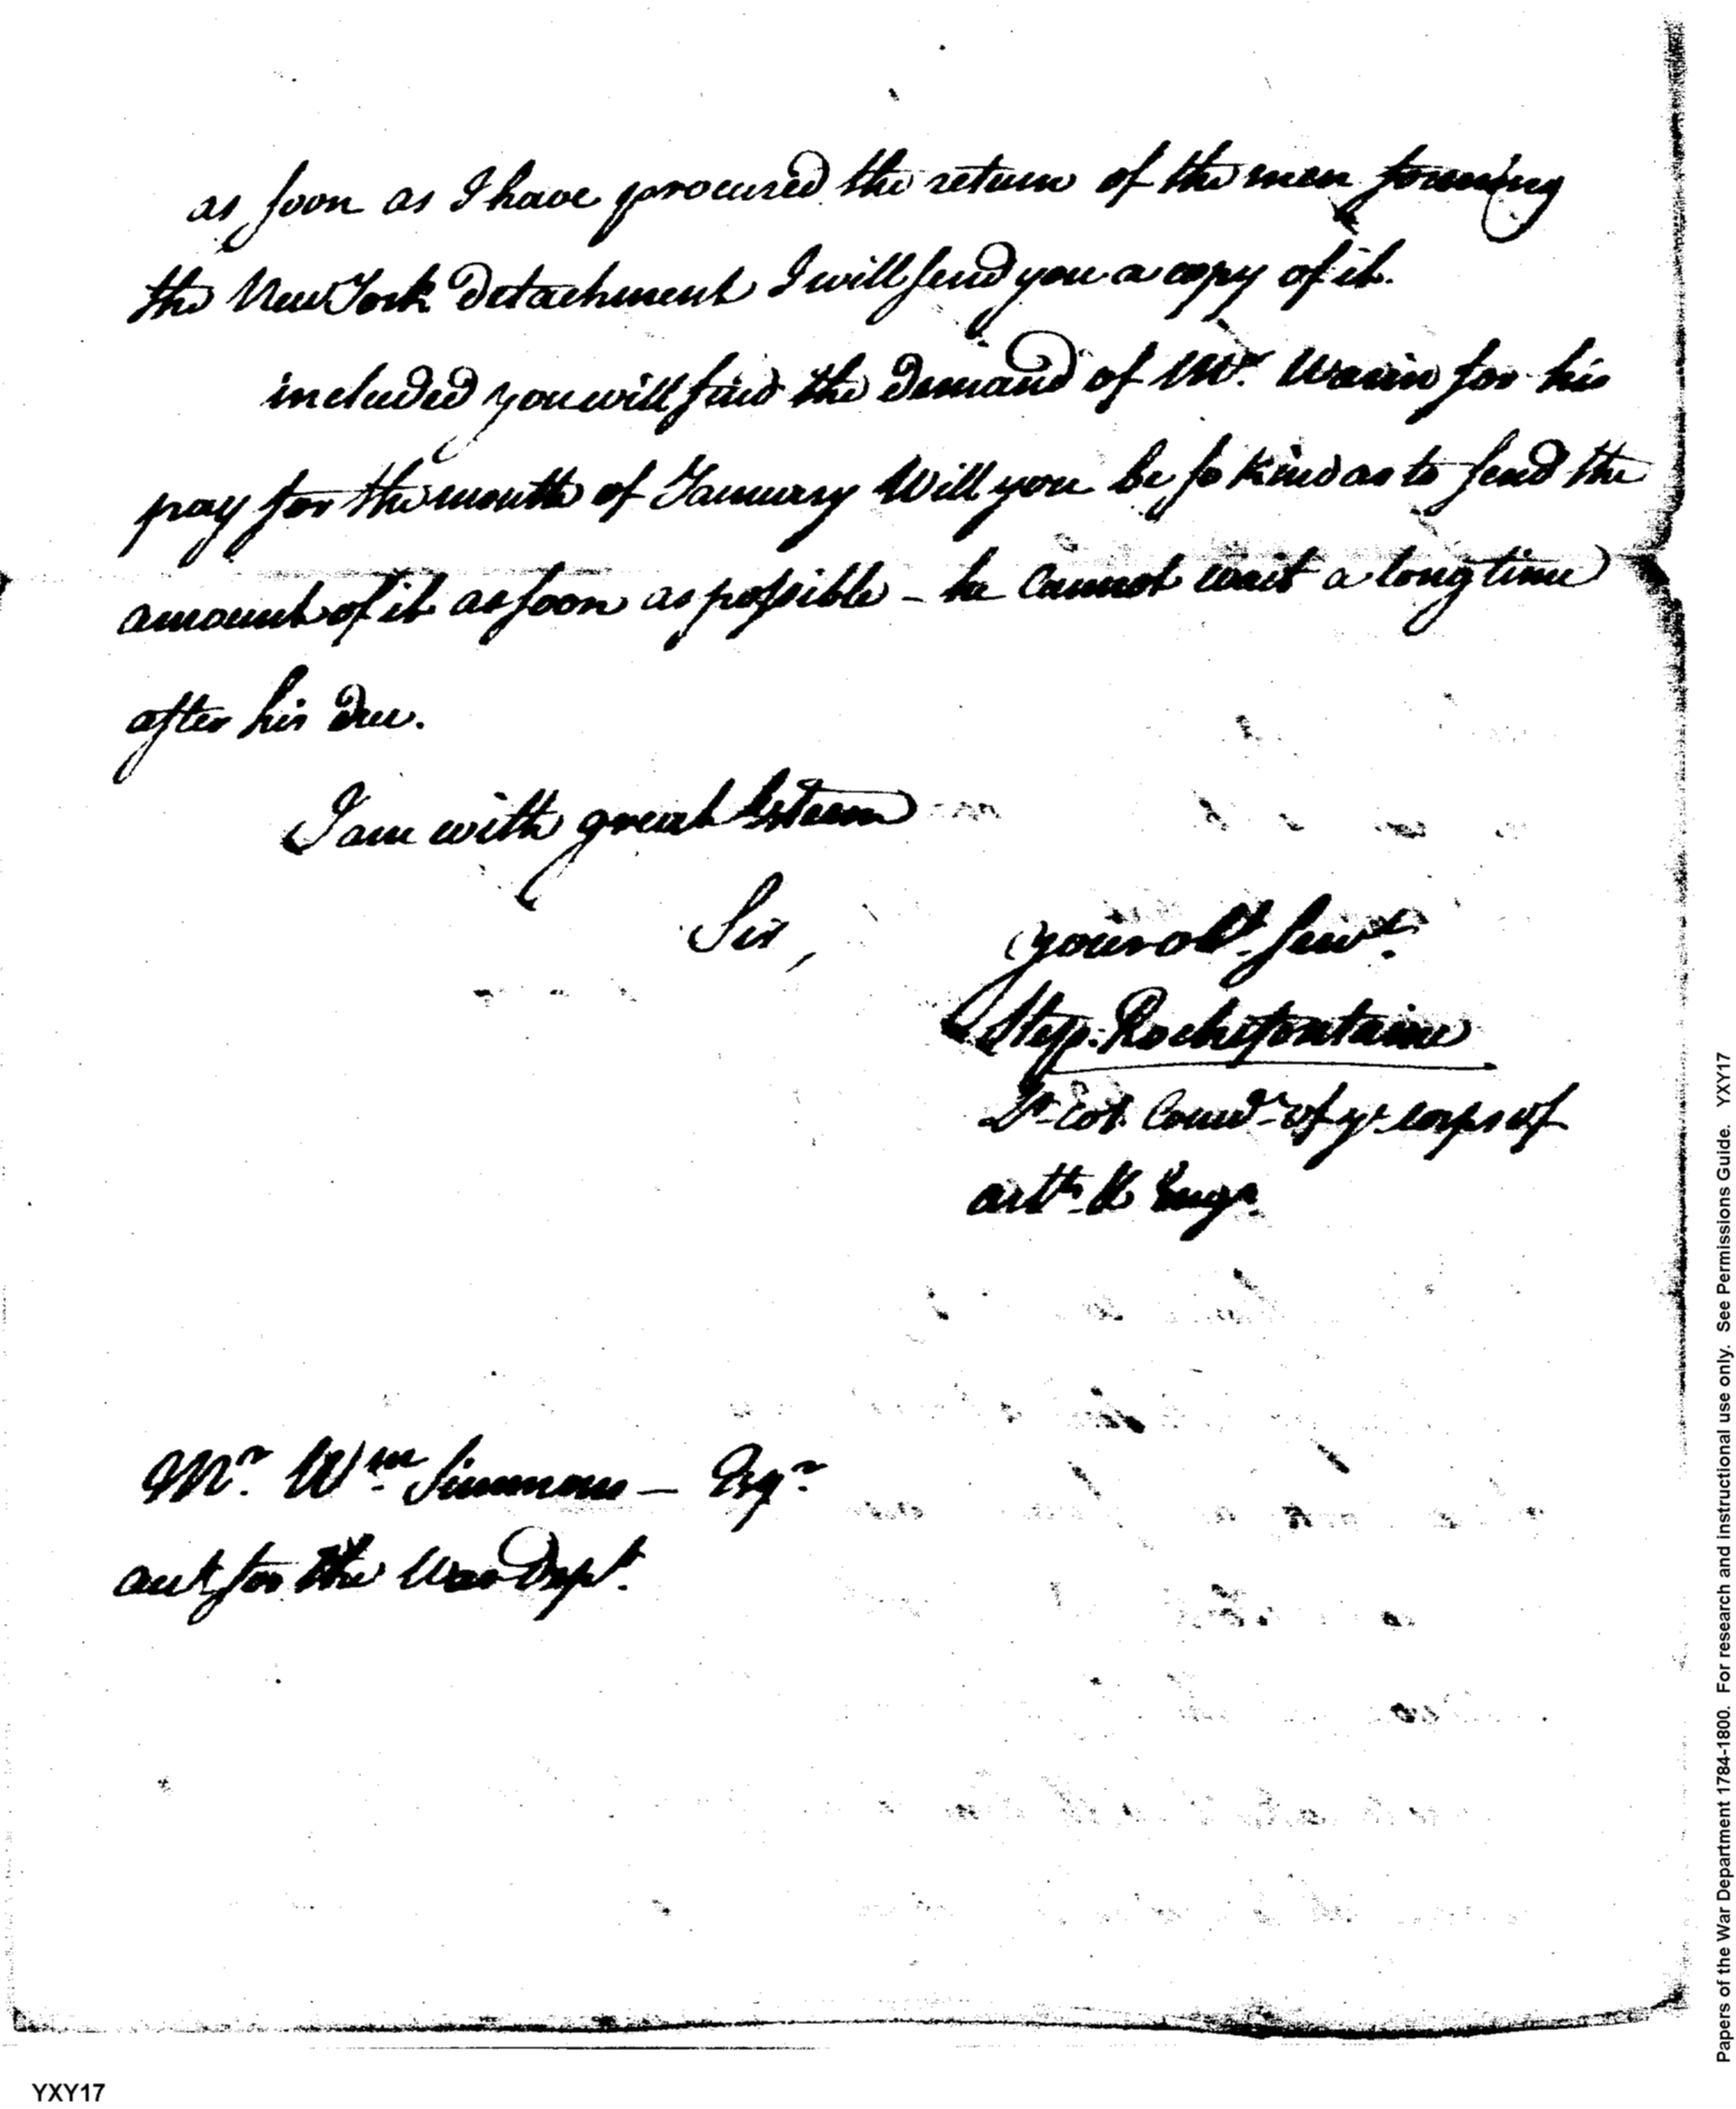 as soon as I have procured the return of the men forming
the New York Detachment I will send you a copy of it.
included you will find the Demand of Mr. Warin for his
pay for the month of January Will you be so Kind as to send the
amount of it as soon as possible - he Cannot wait a long time
after his Due.
I am with great Esteem
Sir,
your obt. servt.
Step. Rochefontaine
Lt. Col. Comd. of ye. corps of
artly. & Engrs.
Mr. Wm. Simmons - Esqr.
act for the War Dept.
YXY17
Papers of the War Department 1784-1800. For research and instructional use only. See Permissions Guide. YXY17